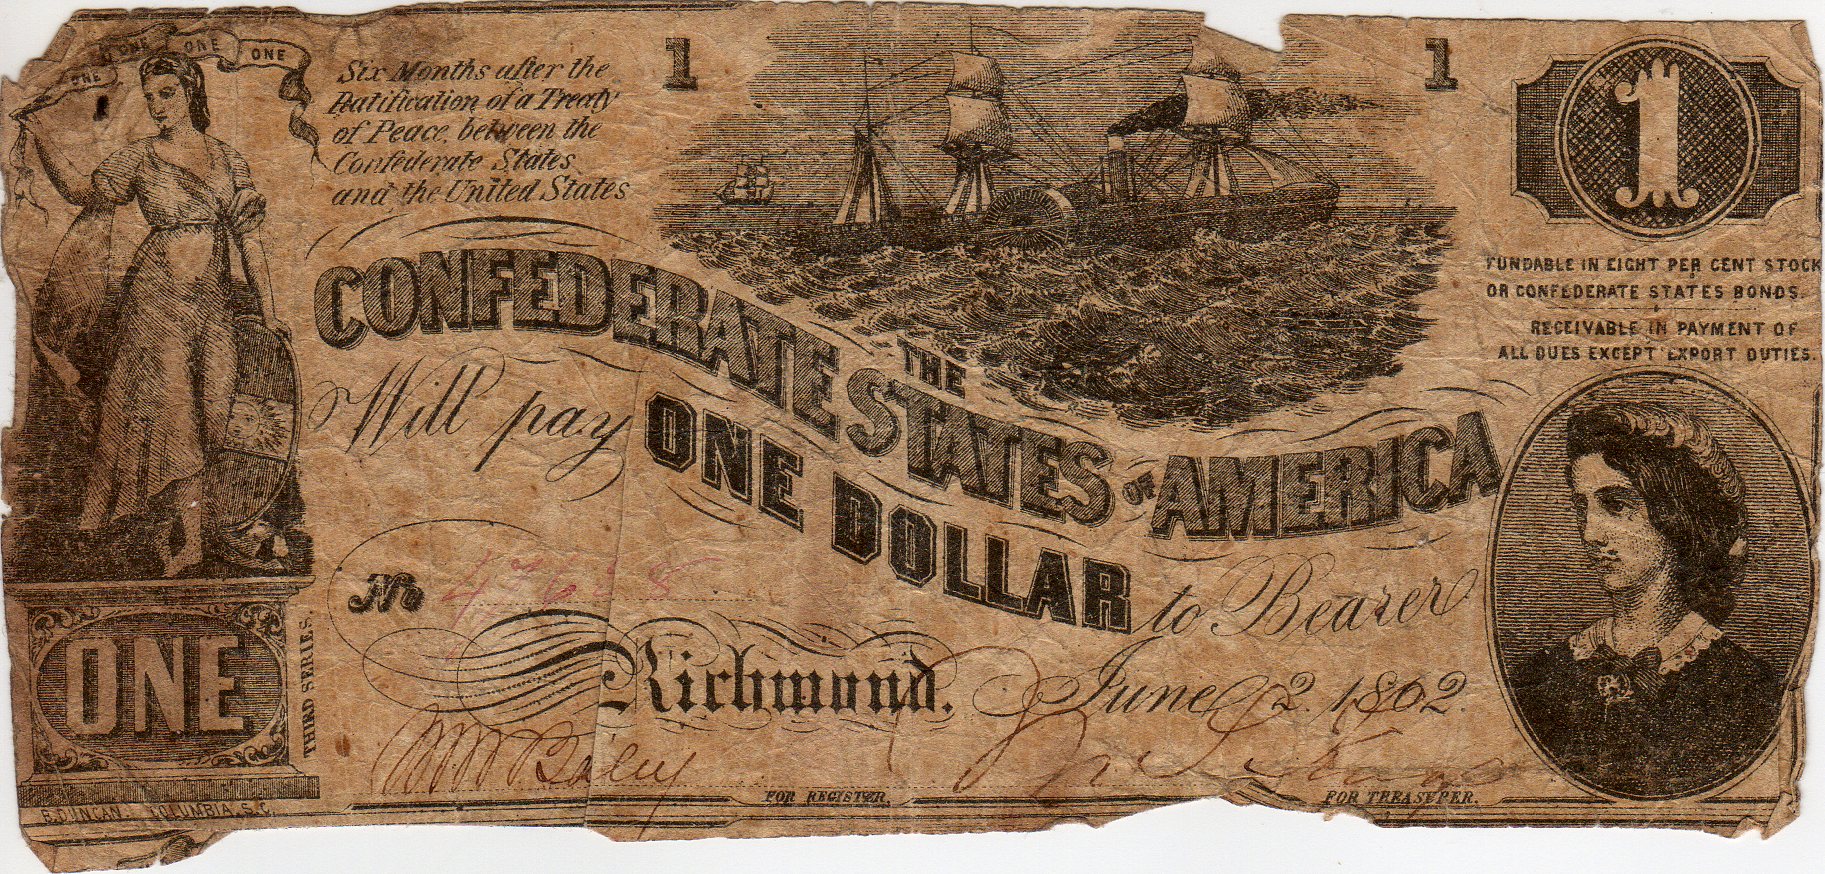 ONE ONE ONE ONE
Six Months after the
Ratification of a Treaty
of Peace, between the
Confederate States
and the United States
1
1
1
FUNDABLE IN EIGHT PER CENT STOCK
OR CONFEDERATE STATES BONDS.
RECEIVABLE IN PAYMENT OF
ALL DUES EXCEPT EXPORT DUTIES.
THE
CONFEDERATE STATES OF AMERICA
Will pay ONE DOLLAR to Bearer
No
Richmond. June 2. 1862.
ONE
THIRD SERIES.
FOR REGISTER.
FOR TREASURER.
B. DUNCAN. COLUMBIA, S.C.